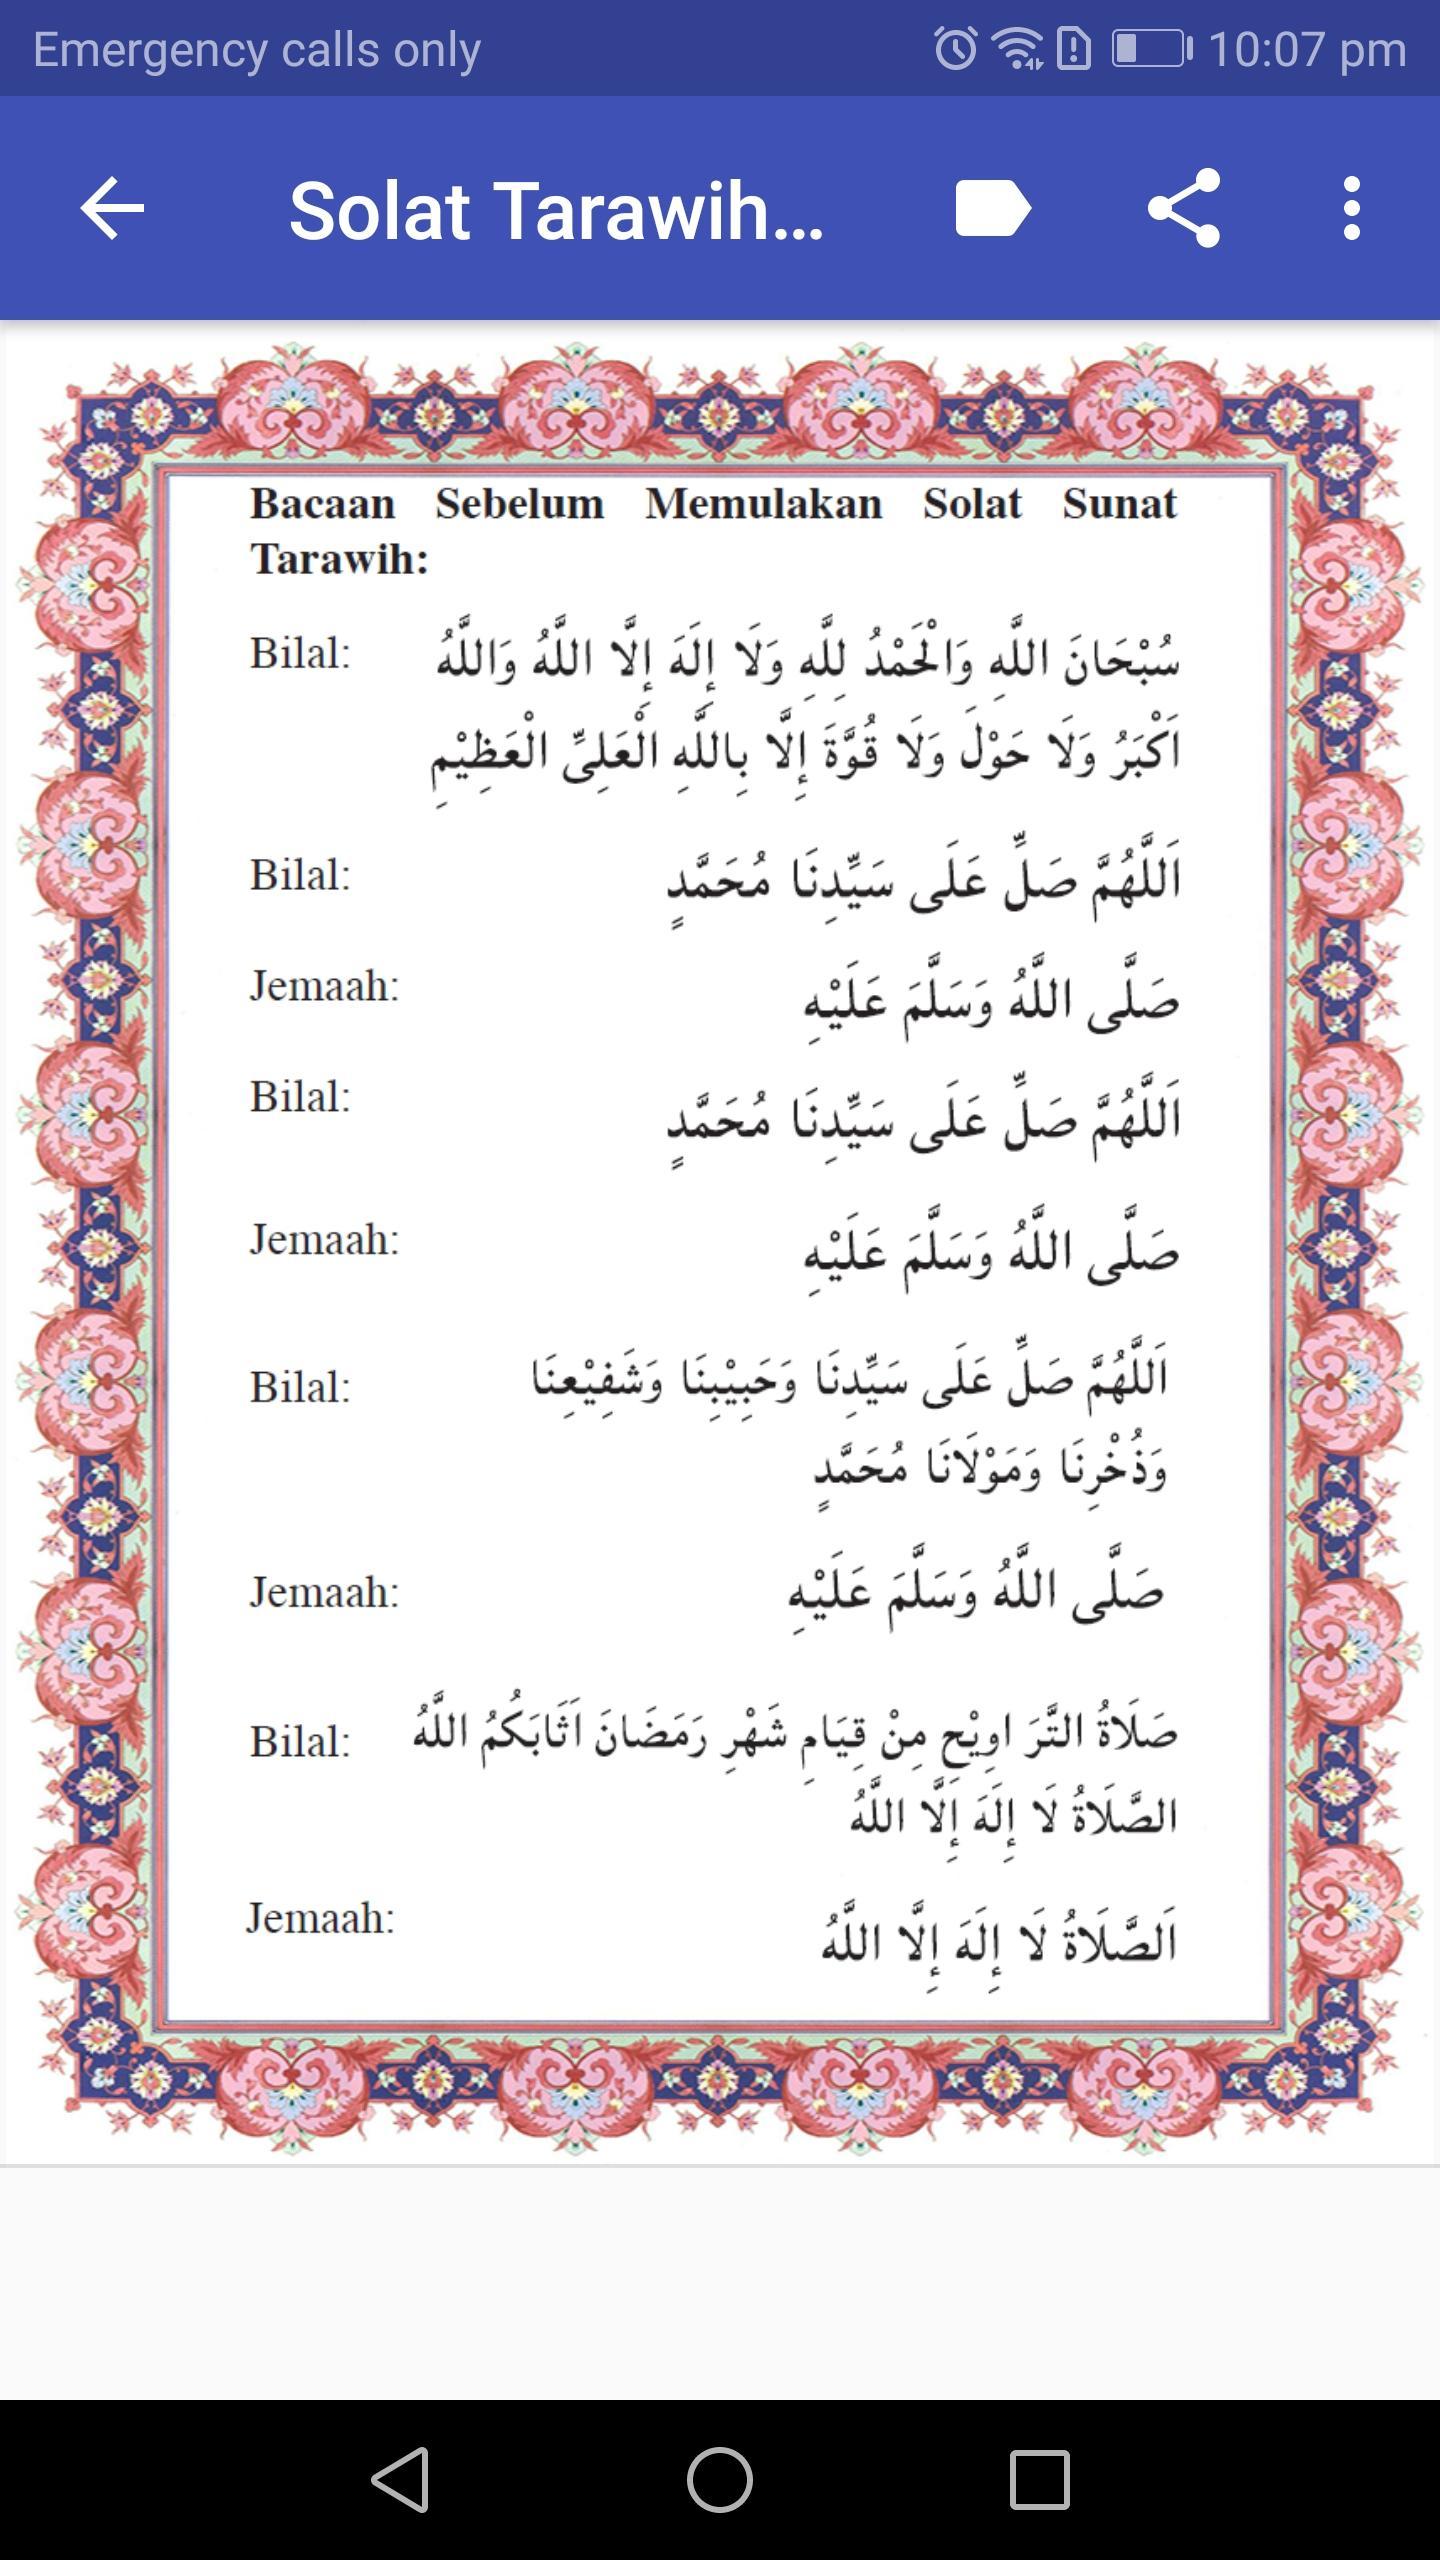 Emergency calls only 10:07 pm
Solat Tarawih...
Bacaan Sebelum Memulakan Solat Sunat
Tarawih:
Bilal: سُبْحَانَ اللَّهِ وَالْحَمْدُ لِلَّهِ وَلَا إِلَهَ إِلَّا اللَّهُ وَاللَّهُ
اَكْبَرُ وَلَا حَوْلَ وَلَا قُوَّةَ إِلَّا بِاللَّهِ الْعَلِىِّ الْعَظِيْمِ
Bilal: اَللَّهُمَّ صَلِّ عَلَى سَيِّدِنَا مُحَمَّدٍ
Jemaah: صَلَّى اللَّهُ وَسَلَّمَ عَلَيْهِ
Bilal: اَللَّهُمَّ صَلِّ عَلَى سَيِّدِنَا مُحَمَّدٍ
Jemaah: صَلَّى اللَّهُ وَسَلَّمَ عَلَيْهِ
Bilal: اَللَّهُمَّ صَلِّ عَلَى سَيِّدِنَا وَحَبِيْبِنَا وَشَفِيْعِنَا
وَذُخْرِنَا وَمَوْلَانَا مُحَمَّدٍ
Jemaah: صَلَّى اللَّهُ وَسَلَّمَ عَلَيْهِ
Bilal: صَلَاةُ التَّرَ اوِيْحِ مِنْ قِيَامِ شَهْرِ رَمَضَانَ اَثَابَكُمُ اللَّهُ
الصَّلَاةُ لَا إِلَهَ إِلَّا اللَّهُ
Jemaah: اَلصَّلَاةُ لَا إِلَهَ إِلَّا اللَّهُ